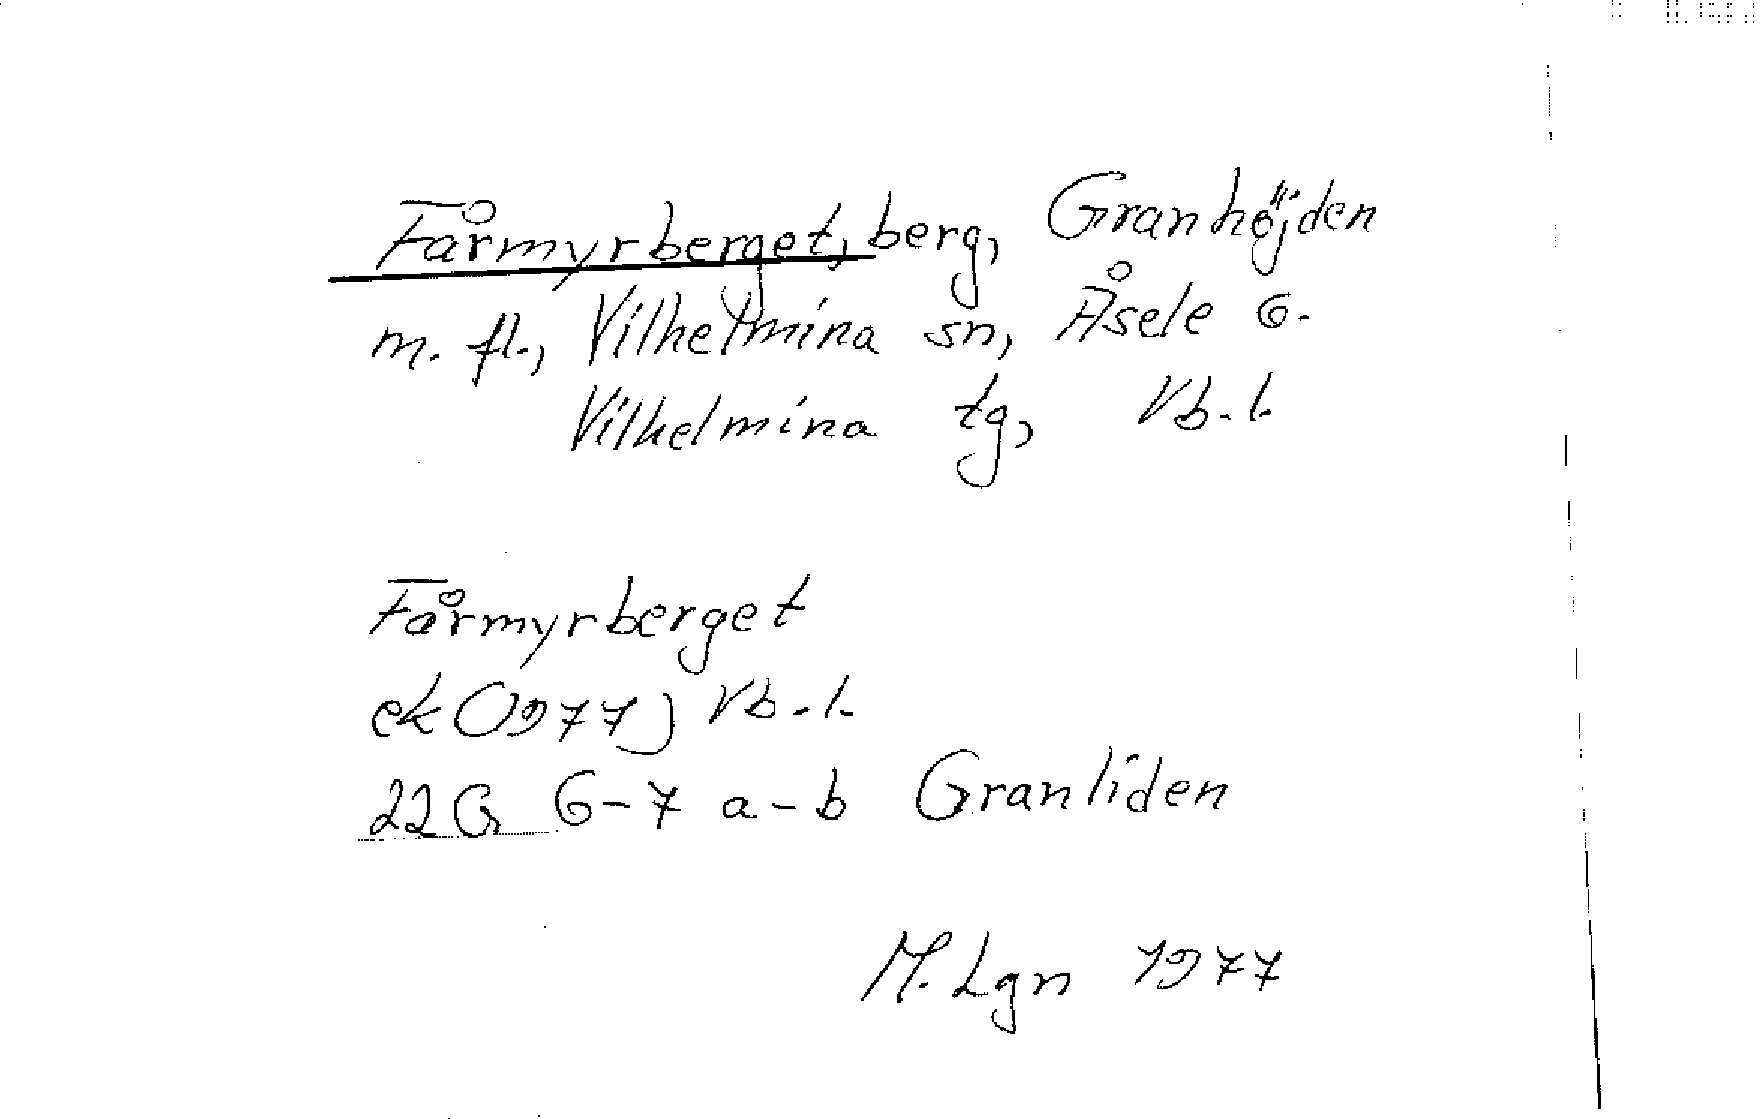 Fårmyrberget, berg, Granhöjden
m. fl., Vilhelmina sn, Åsele 6.
Vilhelmina tg, Vb. l.
Fårmyrberget
ek (1977) Vb. l.
22G 6-7 a-b Granliden
M. Lgn 1977